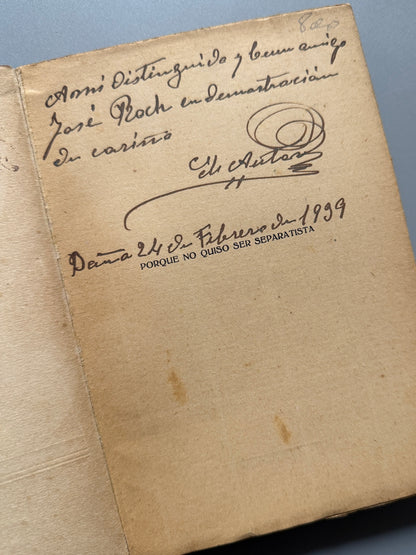 A mi distinguido y buen amigo
José Roch en demostración
de cariño
El Autor
24 de Febrero de 1939
PORQUE NO QUISO SER SEPARATISTA